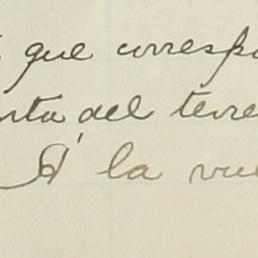 que corresp
nta del terre
A la vue